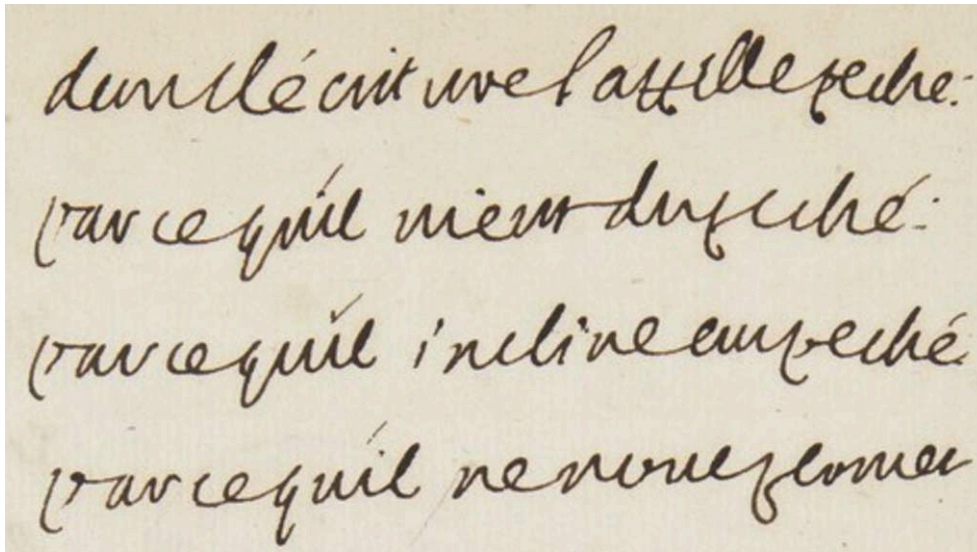 dans l'écriture l'appelle peché.
parce qu'il vient du peché.
parce qu'il incline au peché.
parce qu'il ne nous permet